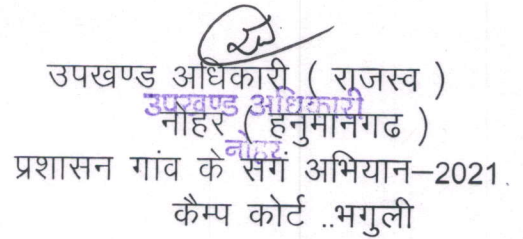 उपखण्ड अधिकारी ( राजस्व )
उपखण्ड अधिकारी
नोहर ( हनुमानगढ )
नोहर
प्रशासन गांव के सगं अभियान–2021.
कैम्प कोर्ट ..भगुली